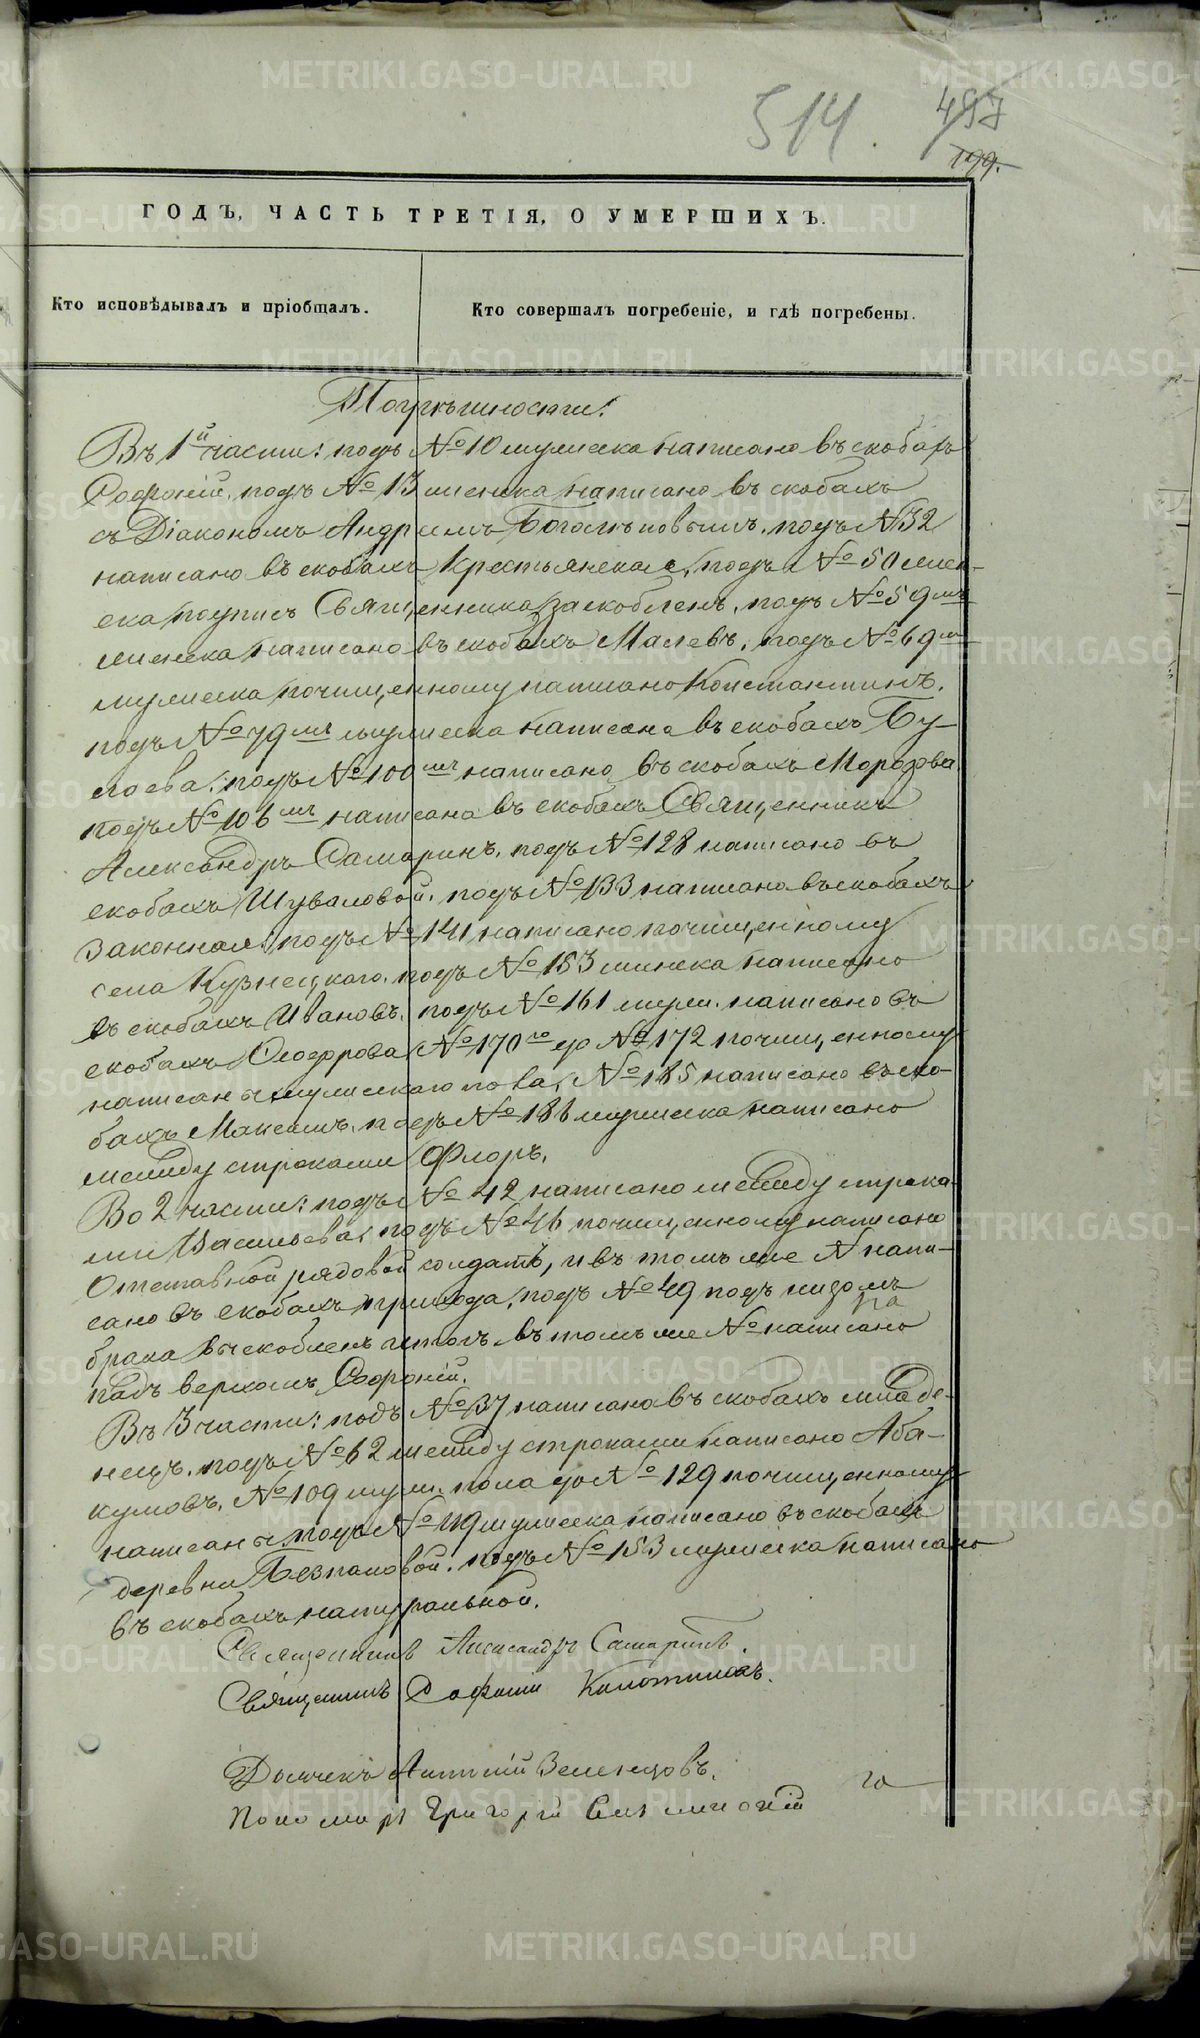 514.
497
199.
ГОДЪ, ЧАСТЬ ТРЕТІЯ, О УМЕРШИХЪ.
Кто исповѣдывалъ и пріобщалъ.
Кто совершалъ погребеніе, и гдѣ погребены.
Погрѣшности:
Въ 1й части: подъ № 10 мужеска написано въ скобахъ
Софроній, подъ № 13 женска написано въ скобахъ
съ Діакономъ Андреемъ Богомѣповымъ, подъ № 32
написано въ скобахъ Крестьянская, подъ № 50 жен-
ска подпись Священника заскобленъ, подъ № 59мъ
женска написано въ скобахъ Малевъ, подъ № 69мъ
мужеска почищенному написано Константинъ,
подъ № 79мъ мужеска написана въ скобахъ Бу-
лаева, подъ № 100мъ написано въ скобахъ Морозова
подъ № 106мъ написано въ скобахъ Священникъ
Александръ Самаринъ, подъ № 128 написано въ
скобахъ Шуваловой, подъ № 133 написано въ скобахъ
законная, подъ № 141 написано почищенному
села Кузнецкаго, подъ № 153 женска написано
въ скобахъ Ивановъ, подъ № 161 муж. написано въ
скобахъ Ѳеодорова, № 170го до № 172 почищенному
написаны мужескаго пола, № 185 написано въ ско-
бахъ Максимъ, подъ № 186 мужеска написано
между строками Флоръ.
Во 2 части: подъ № 42 написано между строка-
ми Васильева, подъ № 46 почищенному написано
Отставной рядовой солдатъ, и въ томъ же № напи-
сано въ скобахъ прихода, подъ № 49 подъ низомъ
брака выскобленъ итогъ въ томъ же № написано
на
надъ верхомъ Софроній.
Въ 3 части: подъ № 37 написано въ скобахъ младе-
нецъ, подъ № 62 между строками написано Аба-
кумовъ, № 109 муж. пола до № 129 почищенному
написаны, подъ № 119 мужеска написано въ скобахъ
деревни Безпаловой, подъ № 153 мужеска написано
въ скобахъ натуральной.
Священникъ Александръ Самаринъ.
Священникъ Софоній
Дьячекъ Антоній Зеленцовъ.
Пономарь Григорій